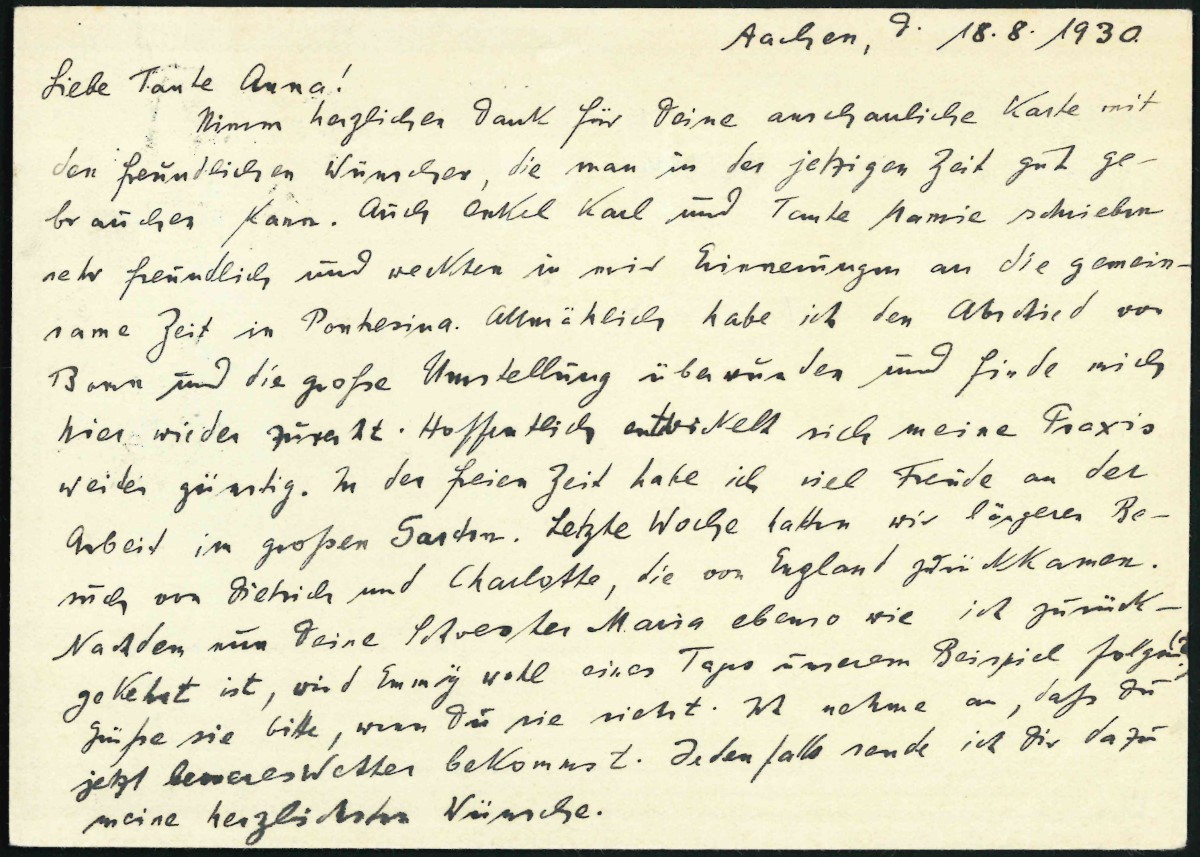 Aachen, d. 18.8.1930.
Liebe Tante Anna!
Nimm herzlichen Dank für Deine anschauliche Karte mit
den freundlichen Wünschen, die man in der jetzigen Zeit gut ge-
brauchen kann. Auch Onkel Karl und Tante Mamie schrieben
sehr freundlich und weckten in mir Erinnerungen an die gemein-
same Zeit in Pontresina. Allmählich habe ich den Abschied von
Bonn und die große Umstellung überwunden und finde mich
hier wieder zurecht. Hoffentlich entwickelt sich meine Praxis
weiter günstig. In der freien Zeit habe ich viel Freude an der
Arbeit im großen Garten. Letzte Woche hatten wir längeren Be-
such von Dietrich und Charlotte, die von England zurückkamen.
Nachdem nun Deine Schwester Maria ebenso wie ich zurück-
gekehrt ist, wird Emmy wohl eines Tages unserem Beispiel folgen
Grüße sie bitte, wenn Du sie siehst. Ich nehme an, daß Du
jetzt besseres Wetter bekommst. Jedenfalls sende ich Dir dazu
meine herzlichsten Wünsche.